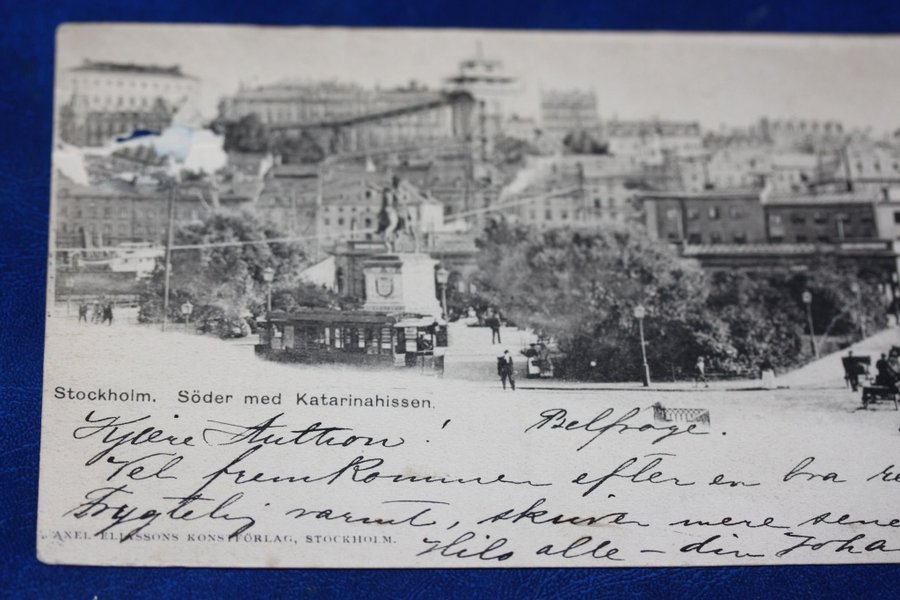 Stockholm. Söder med Katarinahissen.
Kjære Anthon! Belfrage.
Vel fremkommen efter en bra re
Frygtelig varmt, skriver mere sene
AXEL ELIASSONS KONSTFÖRLAG, STOCKHOLM.
Hils alle – din Joha